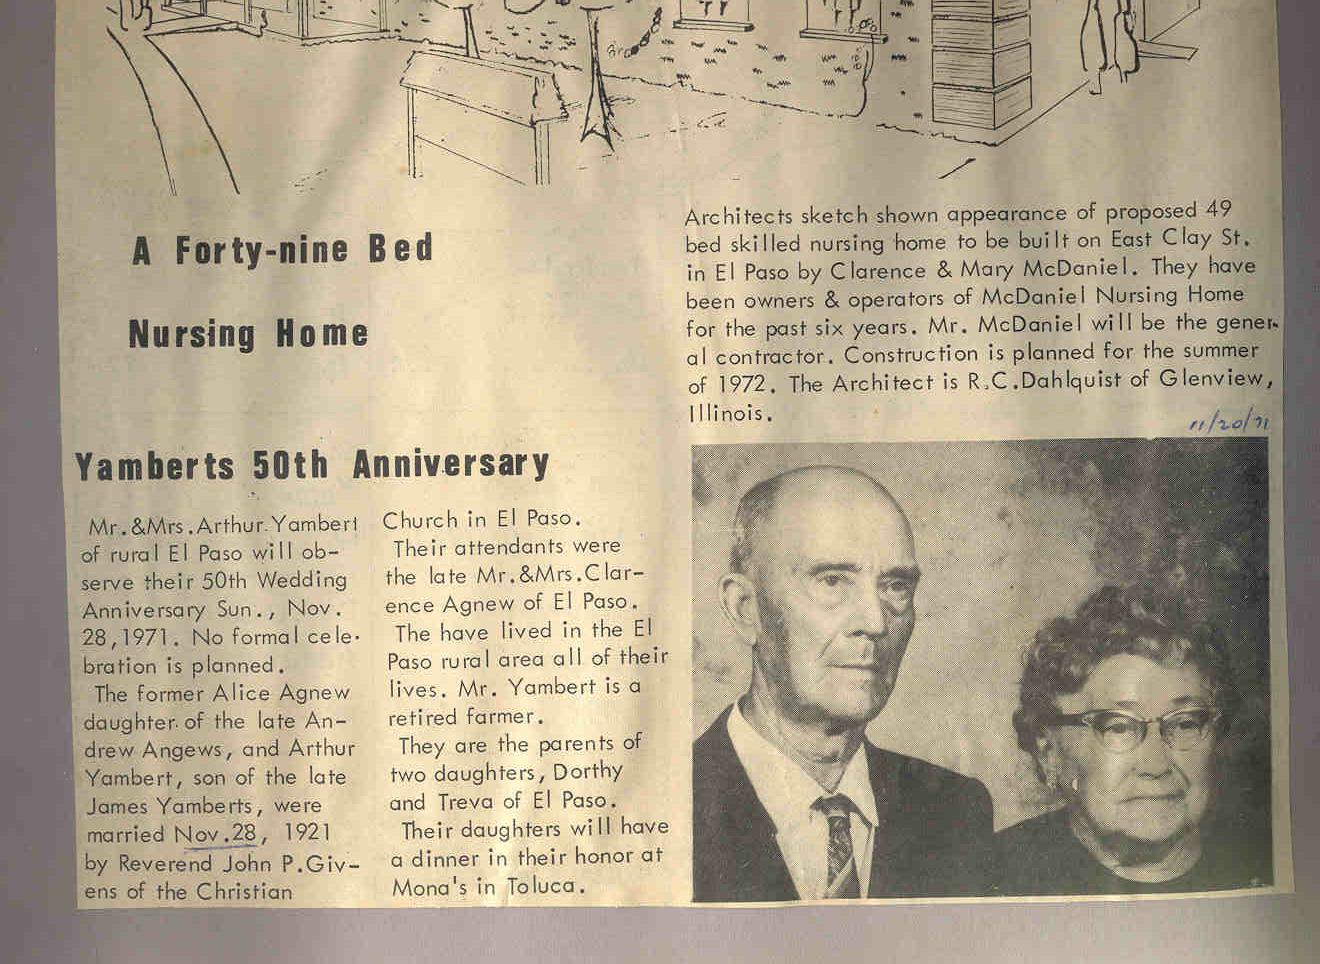 A Forty-nine Bed
Nursing Home
Architects sketch shown appearance of proposed 49
bed skilled nursing home to be built on East Clay St.
in El Paso by Clarence & Mary McDaniel. They have
been owners & operators of McDaniel Nursing Home
for the past six years. Mr. McDaniel will be the gener-
al contractor. Construction is planned for the summer
of 1972. The Architect is R.C.Dahlquist of Glenview,
Illinois.
11/20/71
Yamberts 50th Anniversary
Mr.&Mrs.Arthur Yambert
of rural El Paso will ob-
serve their 50th Wedding
Anniversary Sun., Nov.
28,1971. No formal cele-
bration is planned.
The former Alice Agnew
daughter of the late An-
drew Angews, and Arthur
Yambert, son of the late
James Yamberts, were
married Nov.28, 1921
by Reverend John P.Giv-
ens of the Christian
Church in El Paso.
Their attendants were
the late Mr.&Mrs.Clar-
ence Agnew of El Paso.
The have lived in the El
Paso rural area all of their
lives. Mr. Yambert is a
retired farmer.
They are the parents of
two daughters, Dorthy
and Treva of El Paso.
Their daughters will have
a dinner in their honor at
Mona's in Toluca.